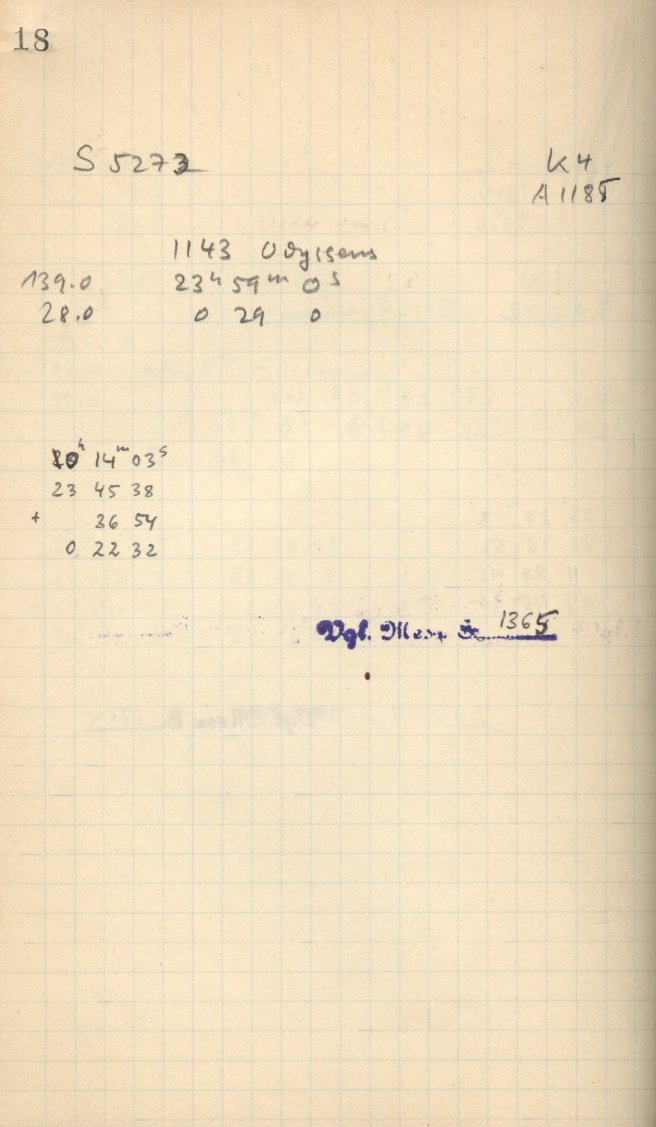 18
S 5273
K 4
A 1188
1143 Odysseus
139.0 23h 59m 0s
28.0 0 29 0
10h 14m 03s
23 45 38
+ 36 54
0 22 32
Vgl. Mess. B. 1365